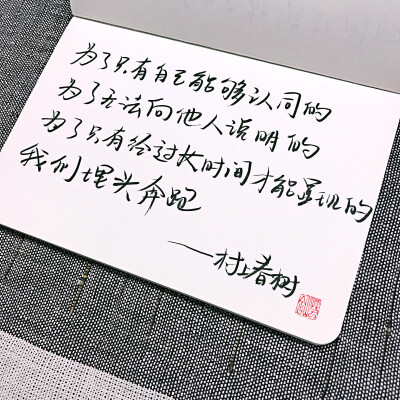 为了只有自己能够认同的
为了无法向他人说明的
为了只有给过长时间才能显现的
我们埋头奔跑
——村上春树